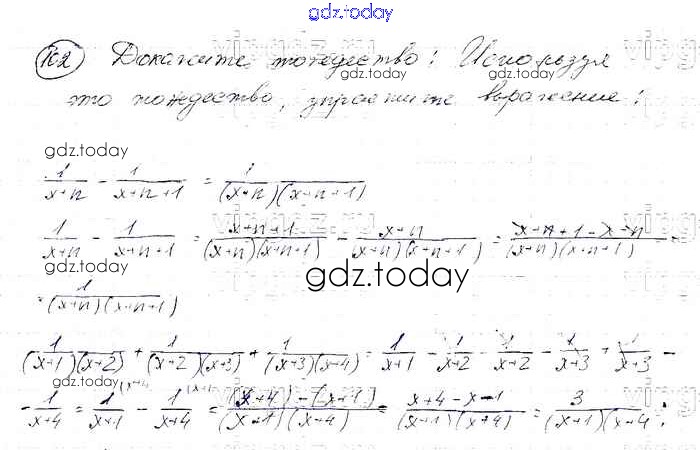 gdz.today
К2 Докажите тождество: Используя
это тождество, упростите выражение:
gdz.today
1/(x+n) - 1/(x+n+1) = 1/((x+n)(x+n+1))
1/(x+n) - 1/(x+n+1) = (x+n+1)/((x+n)(x+n+1)) - (x+n)/((x+n)(x+n+1)) = (x+n+1-x-n)/((x+n)(x+n+1)) =
gdz.today
= 1/((x+n)(x+n+1))
1/((x+1)(x+2)) + 1/((x+2)(x+3)) + 1/((x+3)(x+4)) = 1/(x+1) - 1/(x+2) - 1/(x+2) - 1/(x+3) + 1/(x+3) -
gdz.today
- 1/(x+4) = 1/(x+1) - 1/(x+4) = ((x+4)-(x+1))/((x+1)(x+4)) = (x+4-x-1)/((x+1)(x+4)) = 3/((x+1)(x+4));
gdz.today